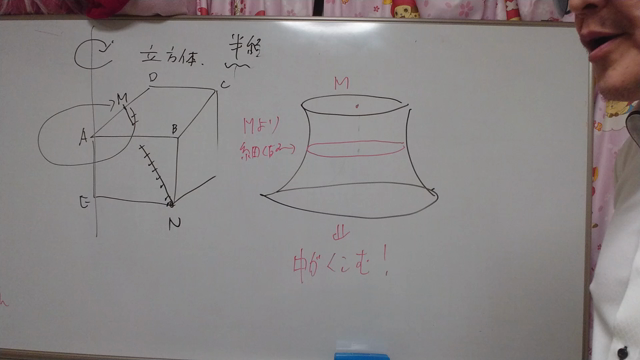 立方体. 半径
D
C
M
A
B
E
N
M
Mより
細くなる→
⇓
中がくこむ!